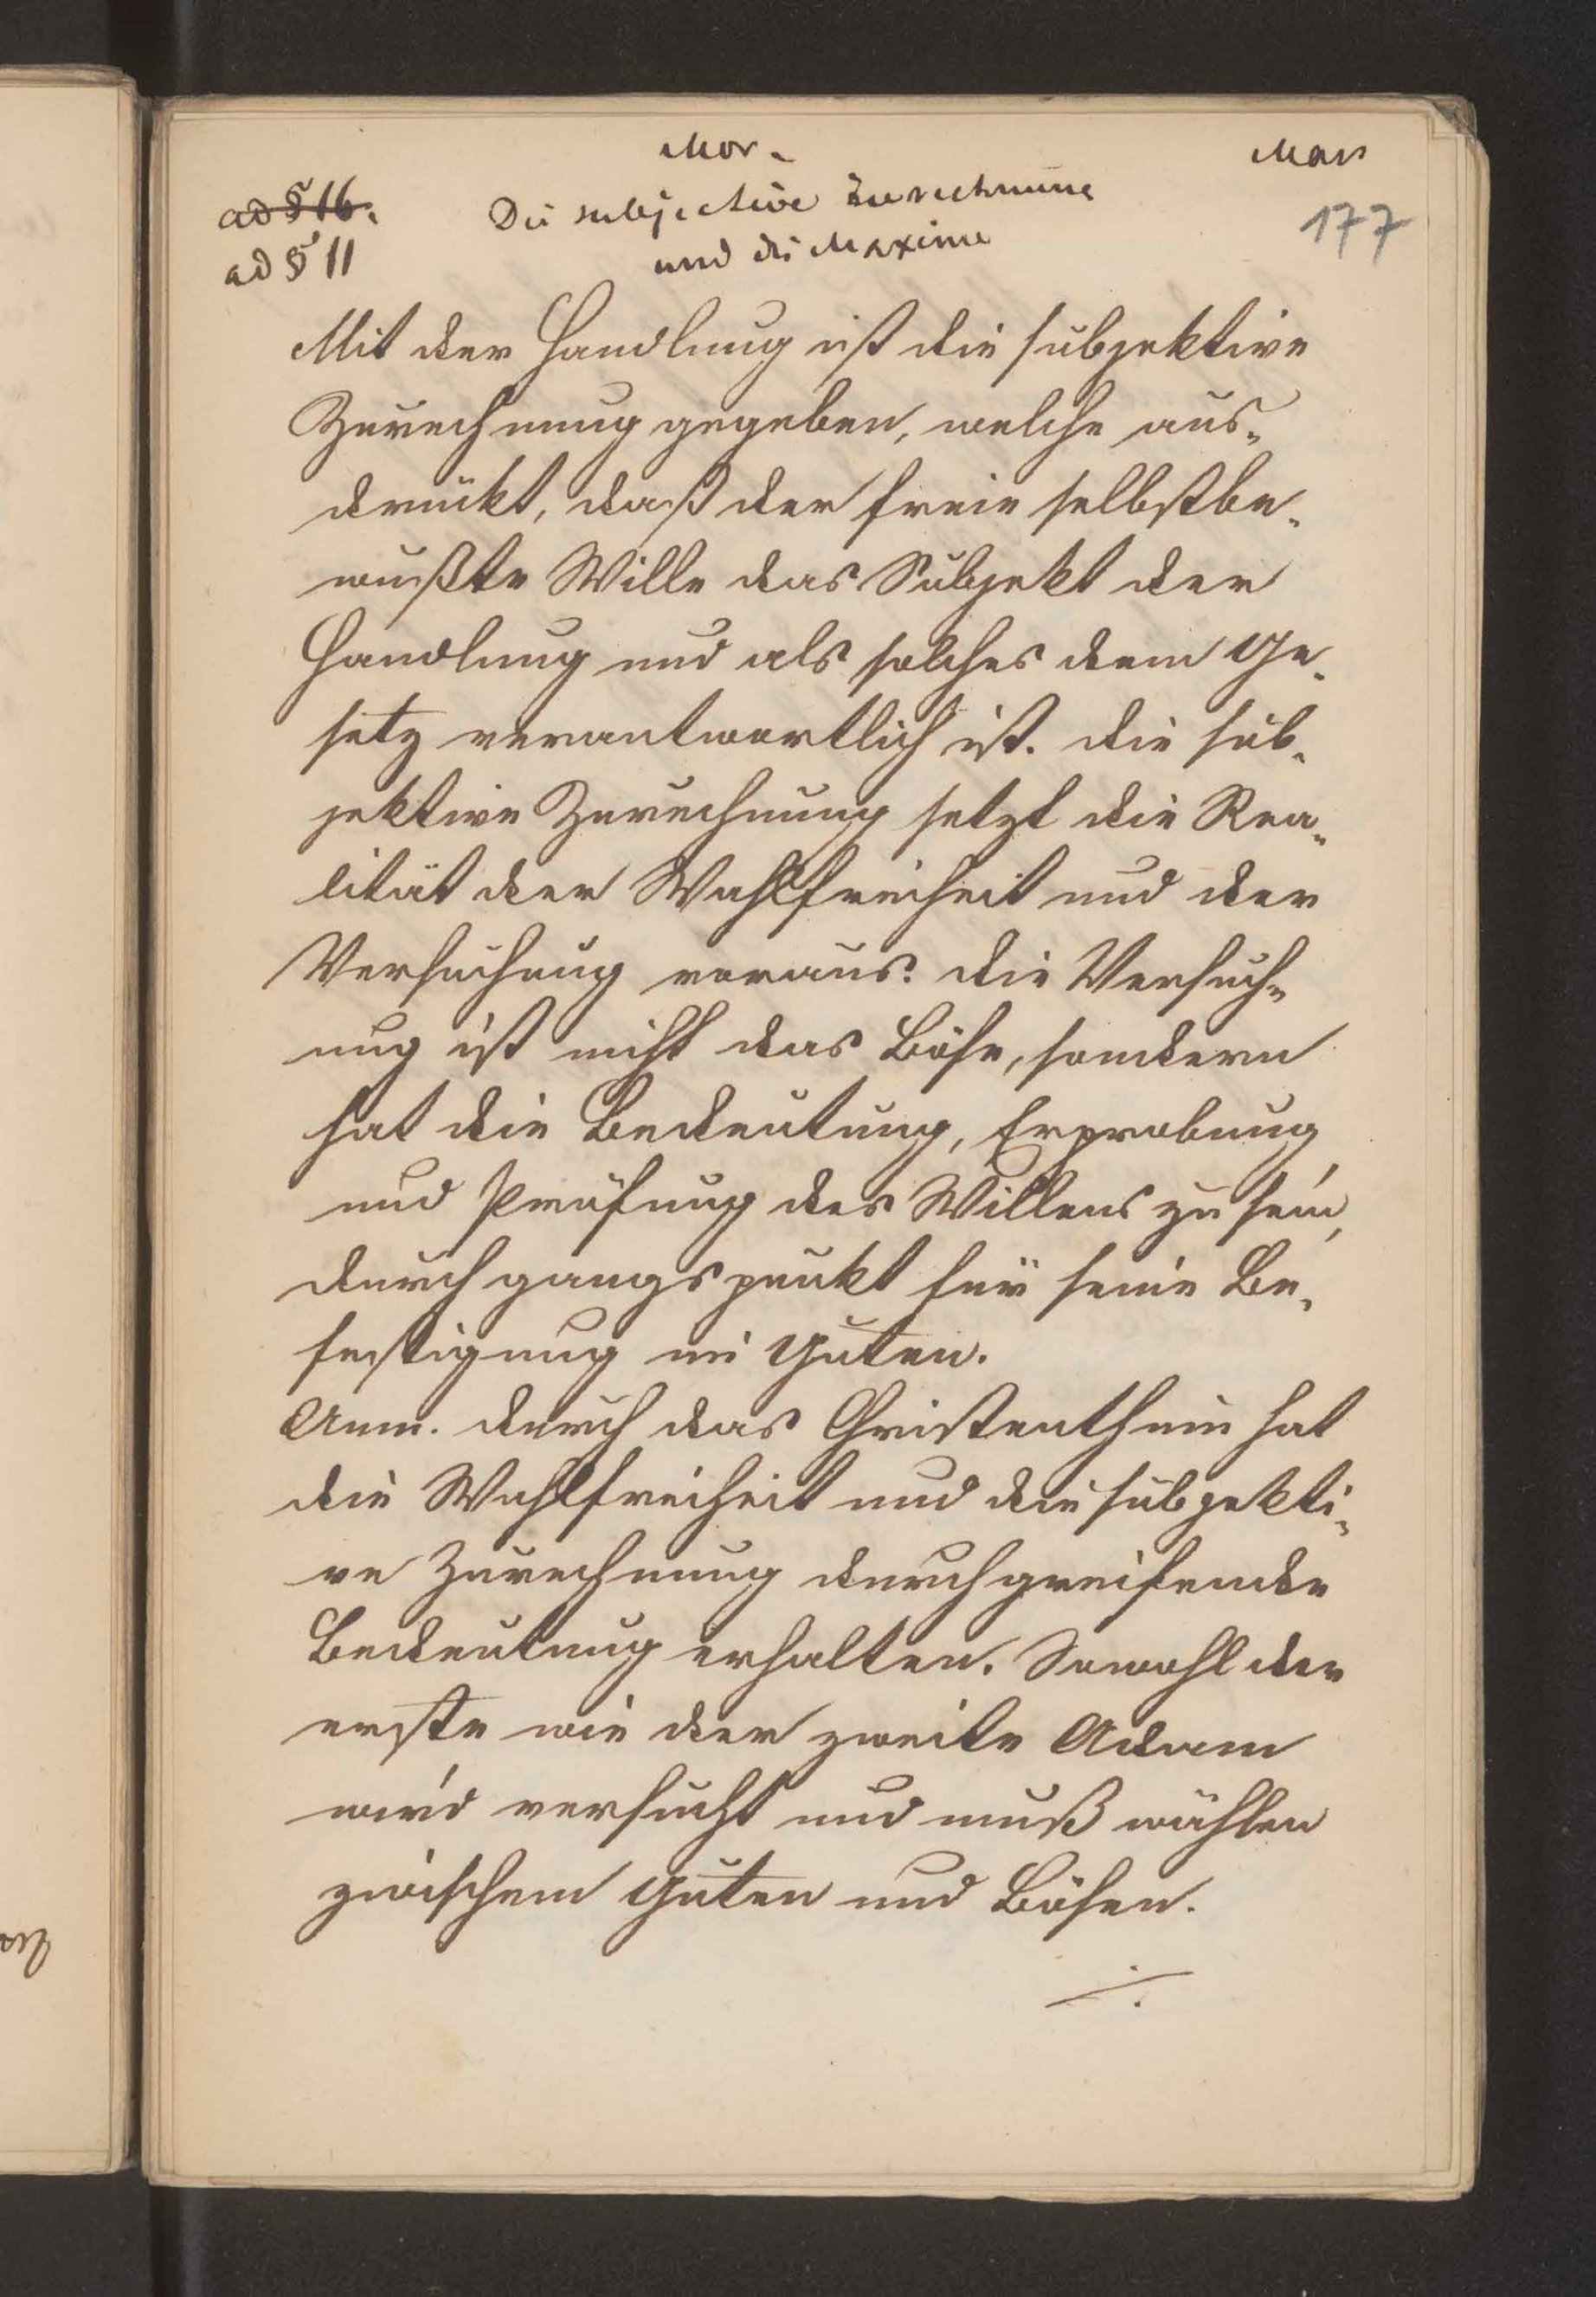 Mor.
Mar
ad § 16.
Die subjective Zurechnung
177
ad § 11
und die Maxime
Mit der Handlung ist die subjektive
Zurechnung gegeben, welche aus-
drückt, daß der freie selbstbe-
wußte Wille das Subjekt der
Handlung und als solches dem Ge-
setz verantwortlich ist. Die sub-
jektive Zurechnung setzt die Rea-
lität der Wahlfreiheit und der
Versuchung voraus. Die Versuch-
ung ist nicht das Böse, sondern
hat die Bedeutung, Erprobung
und Prüfung des Willens zu sein,
Durchgangspunkt für seine Be-
festigung im Guten.
Anm. Durch das Christenthum hat
die Wahlfreiheit und die subjekti-
ve Zurechnung durchgreifende
Bedeutung erhalten. Sowohl der
erste wie der zweite Adam
wird versucht und muß wählen
zwischem Guten und Bösen.